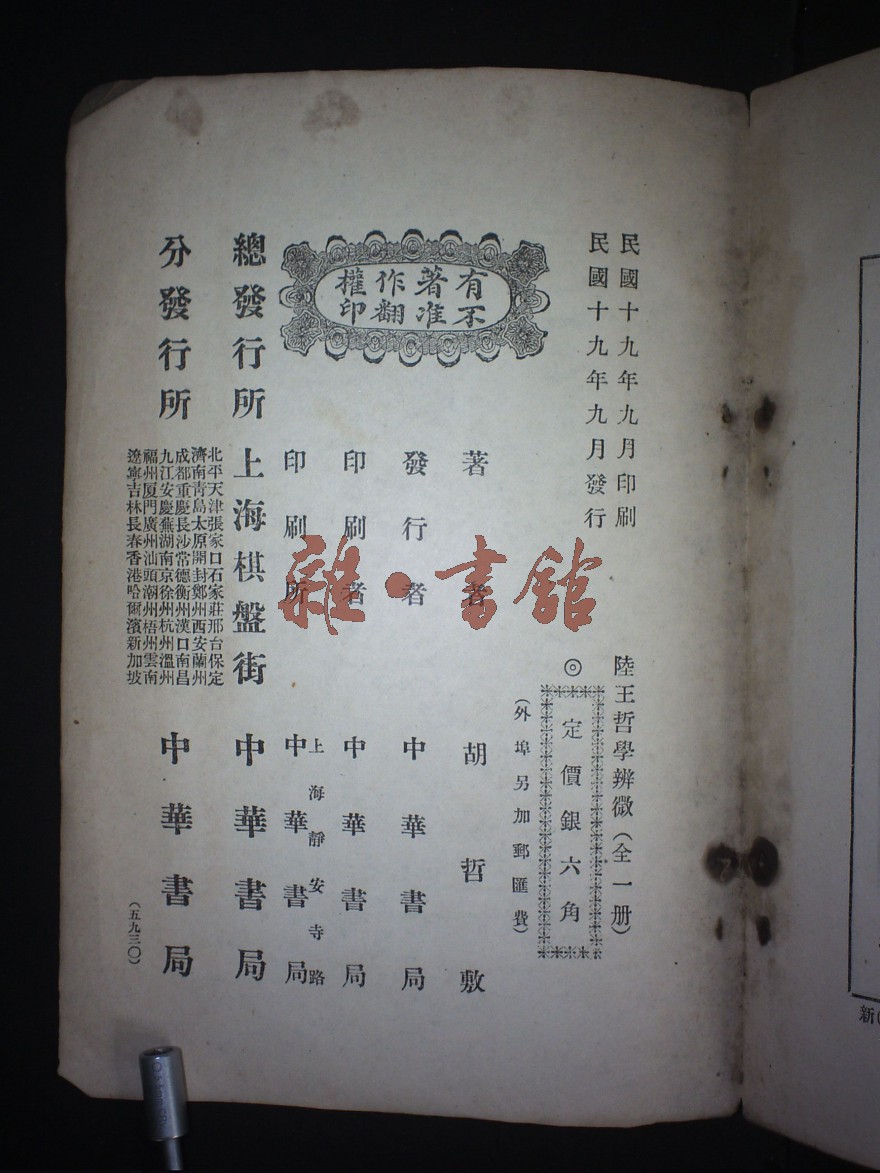 民國十九年九月印刷
民國十九年九月發行
陸王哲學辨微（全一册）
◎定價銀六角
（外埠另加郵匯費）
有著作權
不准翻印
著者 胡哲敷
發行者 中華書局
印刷者 中華書局
印刷所 上海靜安寺路 中華書局
總發行所 上海棋盤街 中華書局
分發行所
北平天津張家口石家莊邢台保定
濟南靑島太原開封鄭州西安蘭州
成都重慶長沙常德衡州漢口南昌
九江安慶蕪湖南京徐州杭州溫州
福州厦門廣州汕頭潮州梧州雲南
遼寧吉林長春香港哈爾濱新加坡
中華書局
（五九三〇）
雜·書館
新